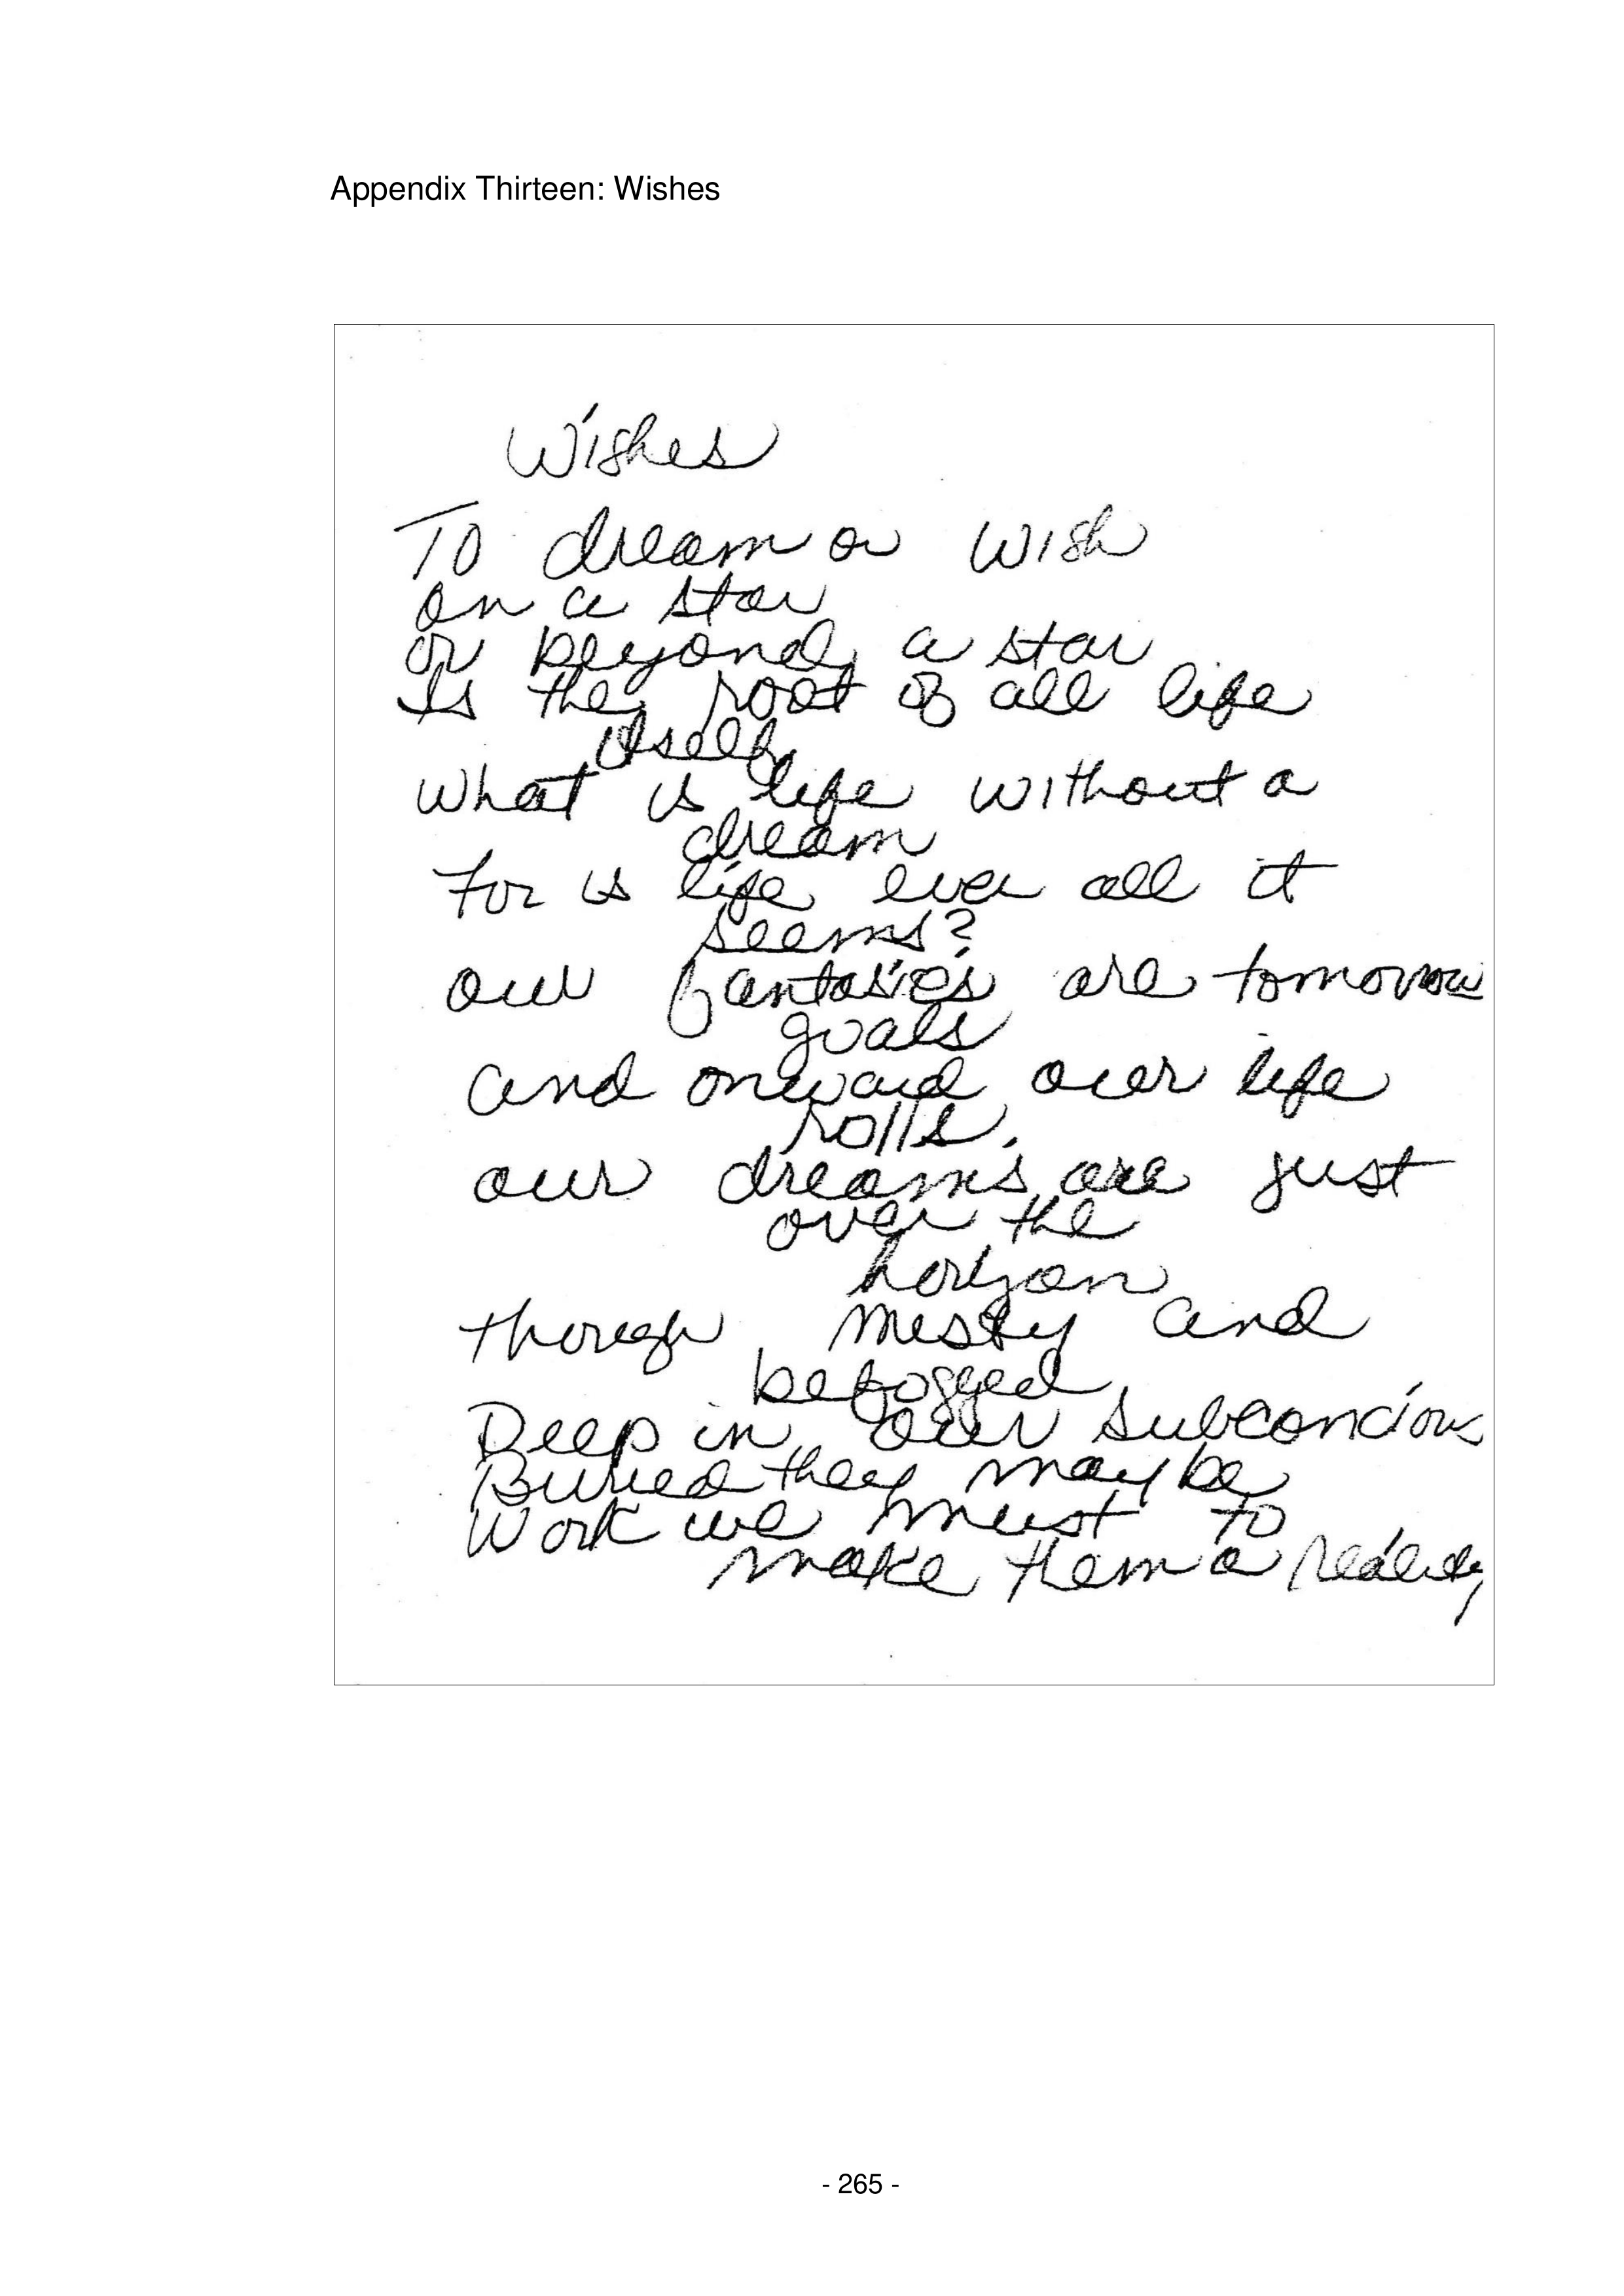 Appendix Thirteen: Wishes
Wishes
To dream or wish
on a star
or beyond a star
Is the root of all life
itself
what is life without a
dream
For is life ever all it
seems?
our fantasies are tomorrow
goals
and onward our life
rolls.
our dreams are just
over the
horizon
though misty and
befogged
Deep in our subconcious
Buried they may be
Work we must to
make them a reality
- 265 -